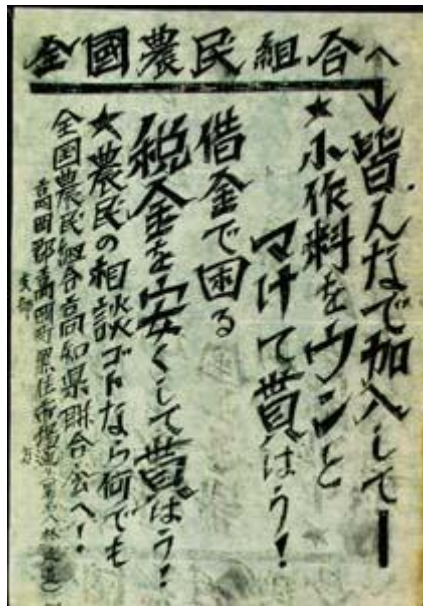 全國農民組合へ
皆んなで加入して
★小作料をウンと
マけて貰はう!
借金で困る
税金を安くして貰はう!
★農民の相談ゴトなら何でも
全国農民組合高知県聯合会へ!
高岡郡高岡町
支部